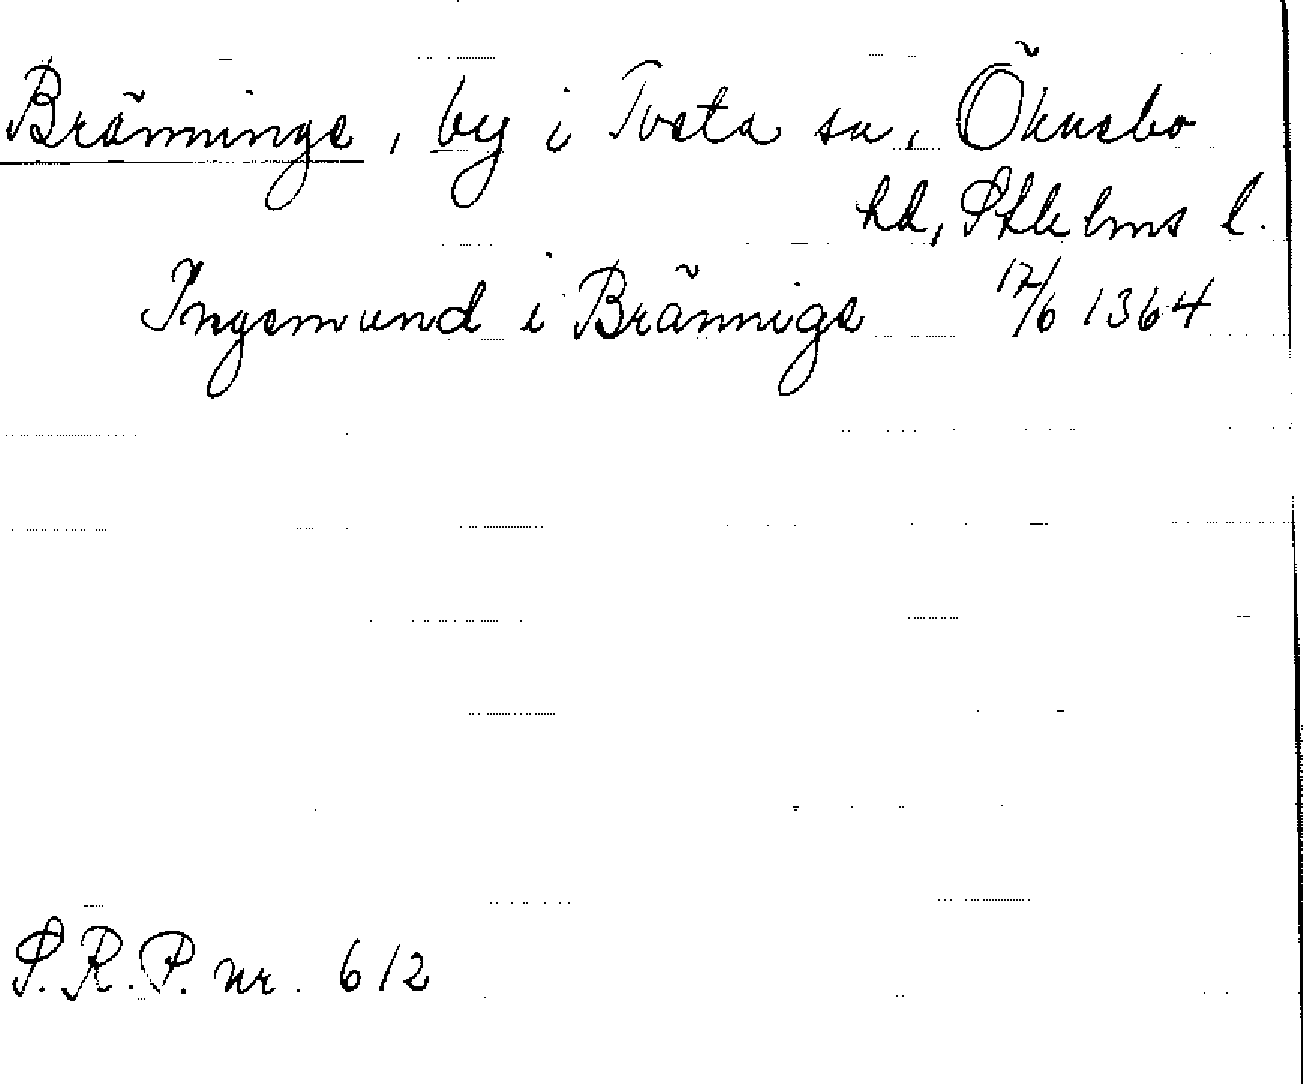 Bränninge, by i Tveta sn, Öknebo
hd, Sthlms l.
Ingemund i Brännige 17/6 1364
S.R.P. nr. 612